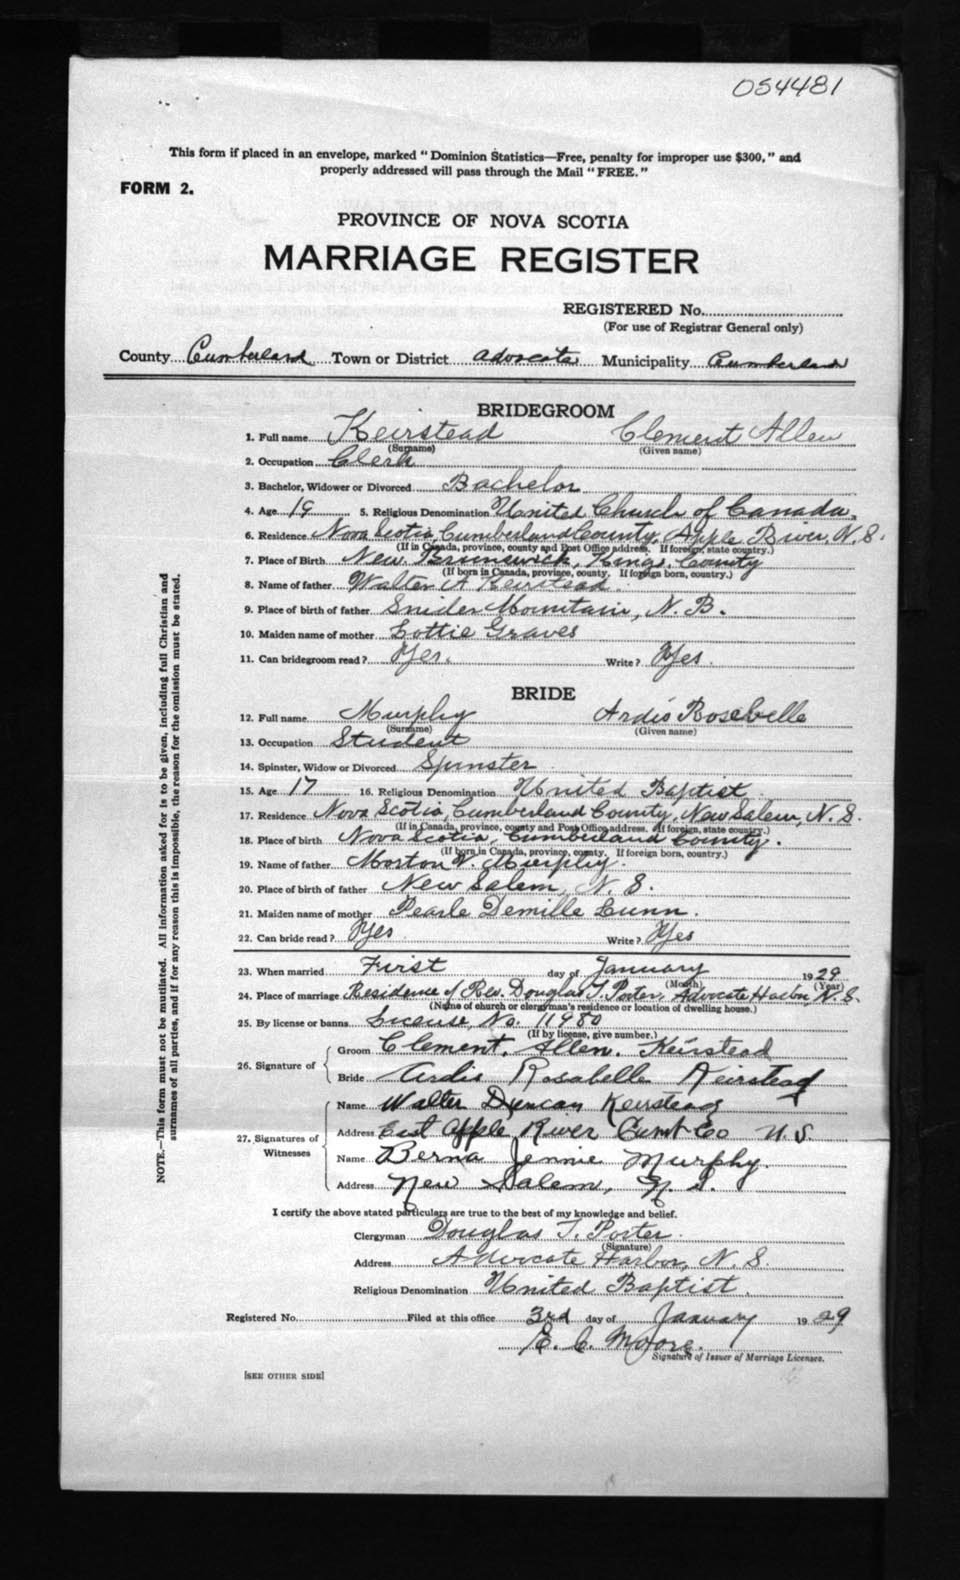 054481
This form if placed in an envelope, marked "Dominion Statistics—Free, penalty for improper use $300," and
properly addressed will pass through the Mail "FREE."
FORM 2.
PROVINCE OF NOVA SCOTIA
MARRIAGE REGISTER
REGISTERED No.
(For use of Registrar General only)
County Cumberland Town or District Advocate Municipality Cumberland
BRIDEGROOM
1. Full name Keirstead Clement Allen
(Surname) (Given name)
2. Occupation Clerk
3. Bachelor, Widower or Divorced Bachelor
4. Age 19 5. Religious Denomination United Church of Canada,
6. Residence Nova Scotia, Cumberland County, Apple River, N.S.
(If in Canada, province, county and Post Office address. If foreign, state country.)
7. Place of Birth New Brunswick, Kings County
(If born in Canada, province, county. If foreign born, country.)
8. Name of father Walter A Keirstead.
9. Place of birth of father Snider Mountain, N.B.
10. Maiden name of mother Lottie Graves
11. Can bridegroom read? Yes. Write? Yes.
BRIDE
12. Full name Murphy Ardis Rosebelle
(Surname) (Given name)
13. Occupation Student
14. Spinster, Widow or Divorced Spinster
15. Age 17 16. Religious Denomination United Baptist.
17. Residence Nova Scotia, Cumberland County, New Salem, N.S.
(If in Canada, province, county and Post Office address. If foreign, state country.)
18. Place of birth Nova Scotia, Cumberland County.
(If born in Canada, province, county. If foreign born, country.)
19. Name of father Morton V. Murphy.
20. Place of birth of father New Salem, N.S.
21. Maiden name of mother Pearle Demille Lunn.
22. Can bride read? Yes Write? Yes
23. When married First day of January 1929
(Month) (Year)
24. Place of marriage Residence of Rev. Douglas T. Porter, Advocate Harbor, N.S.
(Name of church or clergyman's residence or location of dwelling house.)
25. By license or banns License, No. 11980
(If by license, give number.)
26. Signature of
Groom Clement. Allen. Keirstead
Bride Ardis Rosabelle Keirstead
27. Signatures of Witnesses
Name Walter Duncan Keirstead
Address East Apple River Cumb Co N.S.
Name Berna Jennie Murphy.
Address New Salem, N.S.
I certify the above stated particulars are true to the best of my knowledge and belief.
Clergyman Douglas T. Porter.
(Signature)
Address Advocate Harbor, N.S.
Religious Denomination United Baptist.
Registered No. Filed at this office 3rd day of January 1929
E. C. Moore.
Signature of Issuer of Marriage Licenses.
[SEE OTHER SIDE]
NOTE.—This form must not be mutilated. All information asked for is to be given, including full Christian and
surnames of all parties, and if for any reason this is impossible, the reason for the omission must be stated.